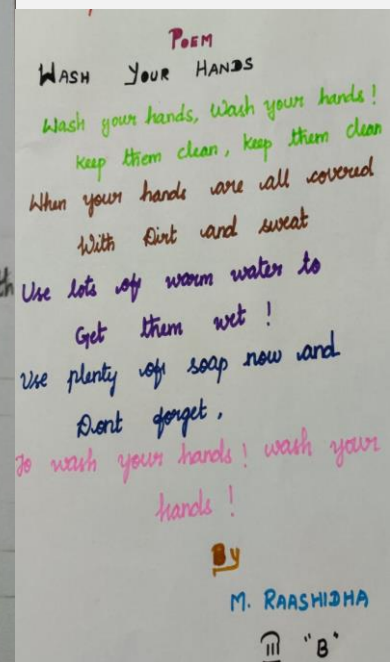 POEM
WASH YOUR HANDS
Wash your hands, Wash your hands!
Keep them clean, keep them clean
When your hands are all covered
With Dirt and sweat
Use lots of warm water to
Get them wet!
Use plenty of soap now and
Dont forget,
To wash your hands! wash your
hands!
By
M. RAASHIDHA
III "B"